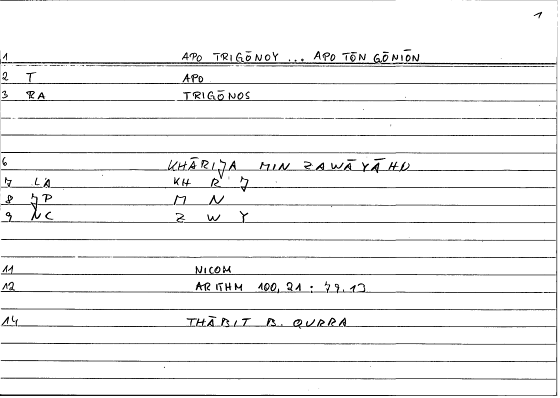 1
1 APO TRIGŌNOY ... APO TŌN GŌNIŌN
2 T APO
3 RA TRIGŌNOS
6 KHĀRIJA MIN ZAWĀYĀHĀ
7 LA KH R J
8 JP M N
9 NC Z W Y
11 NICOM
12 ARITHM 100,21 : 79.13
14 THĀBIT B. QURRA